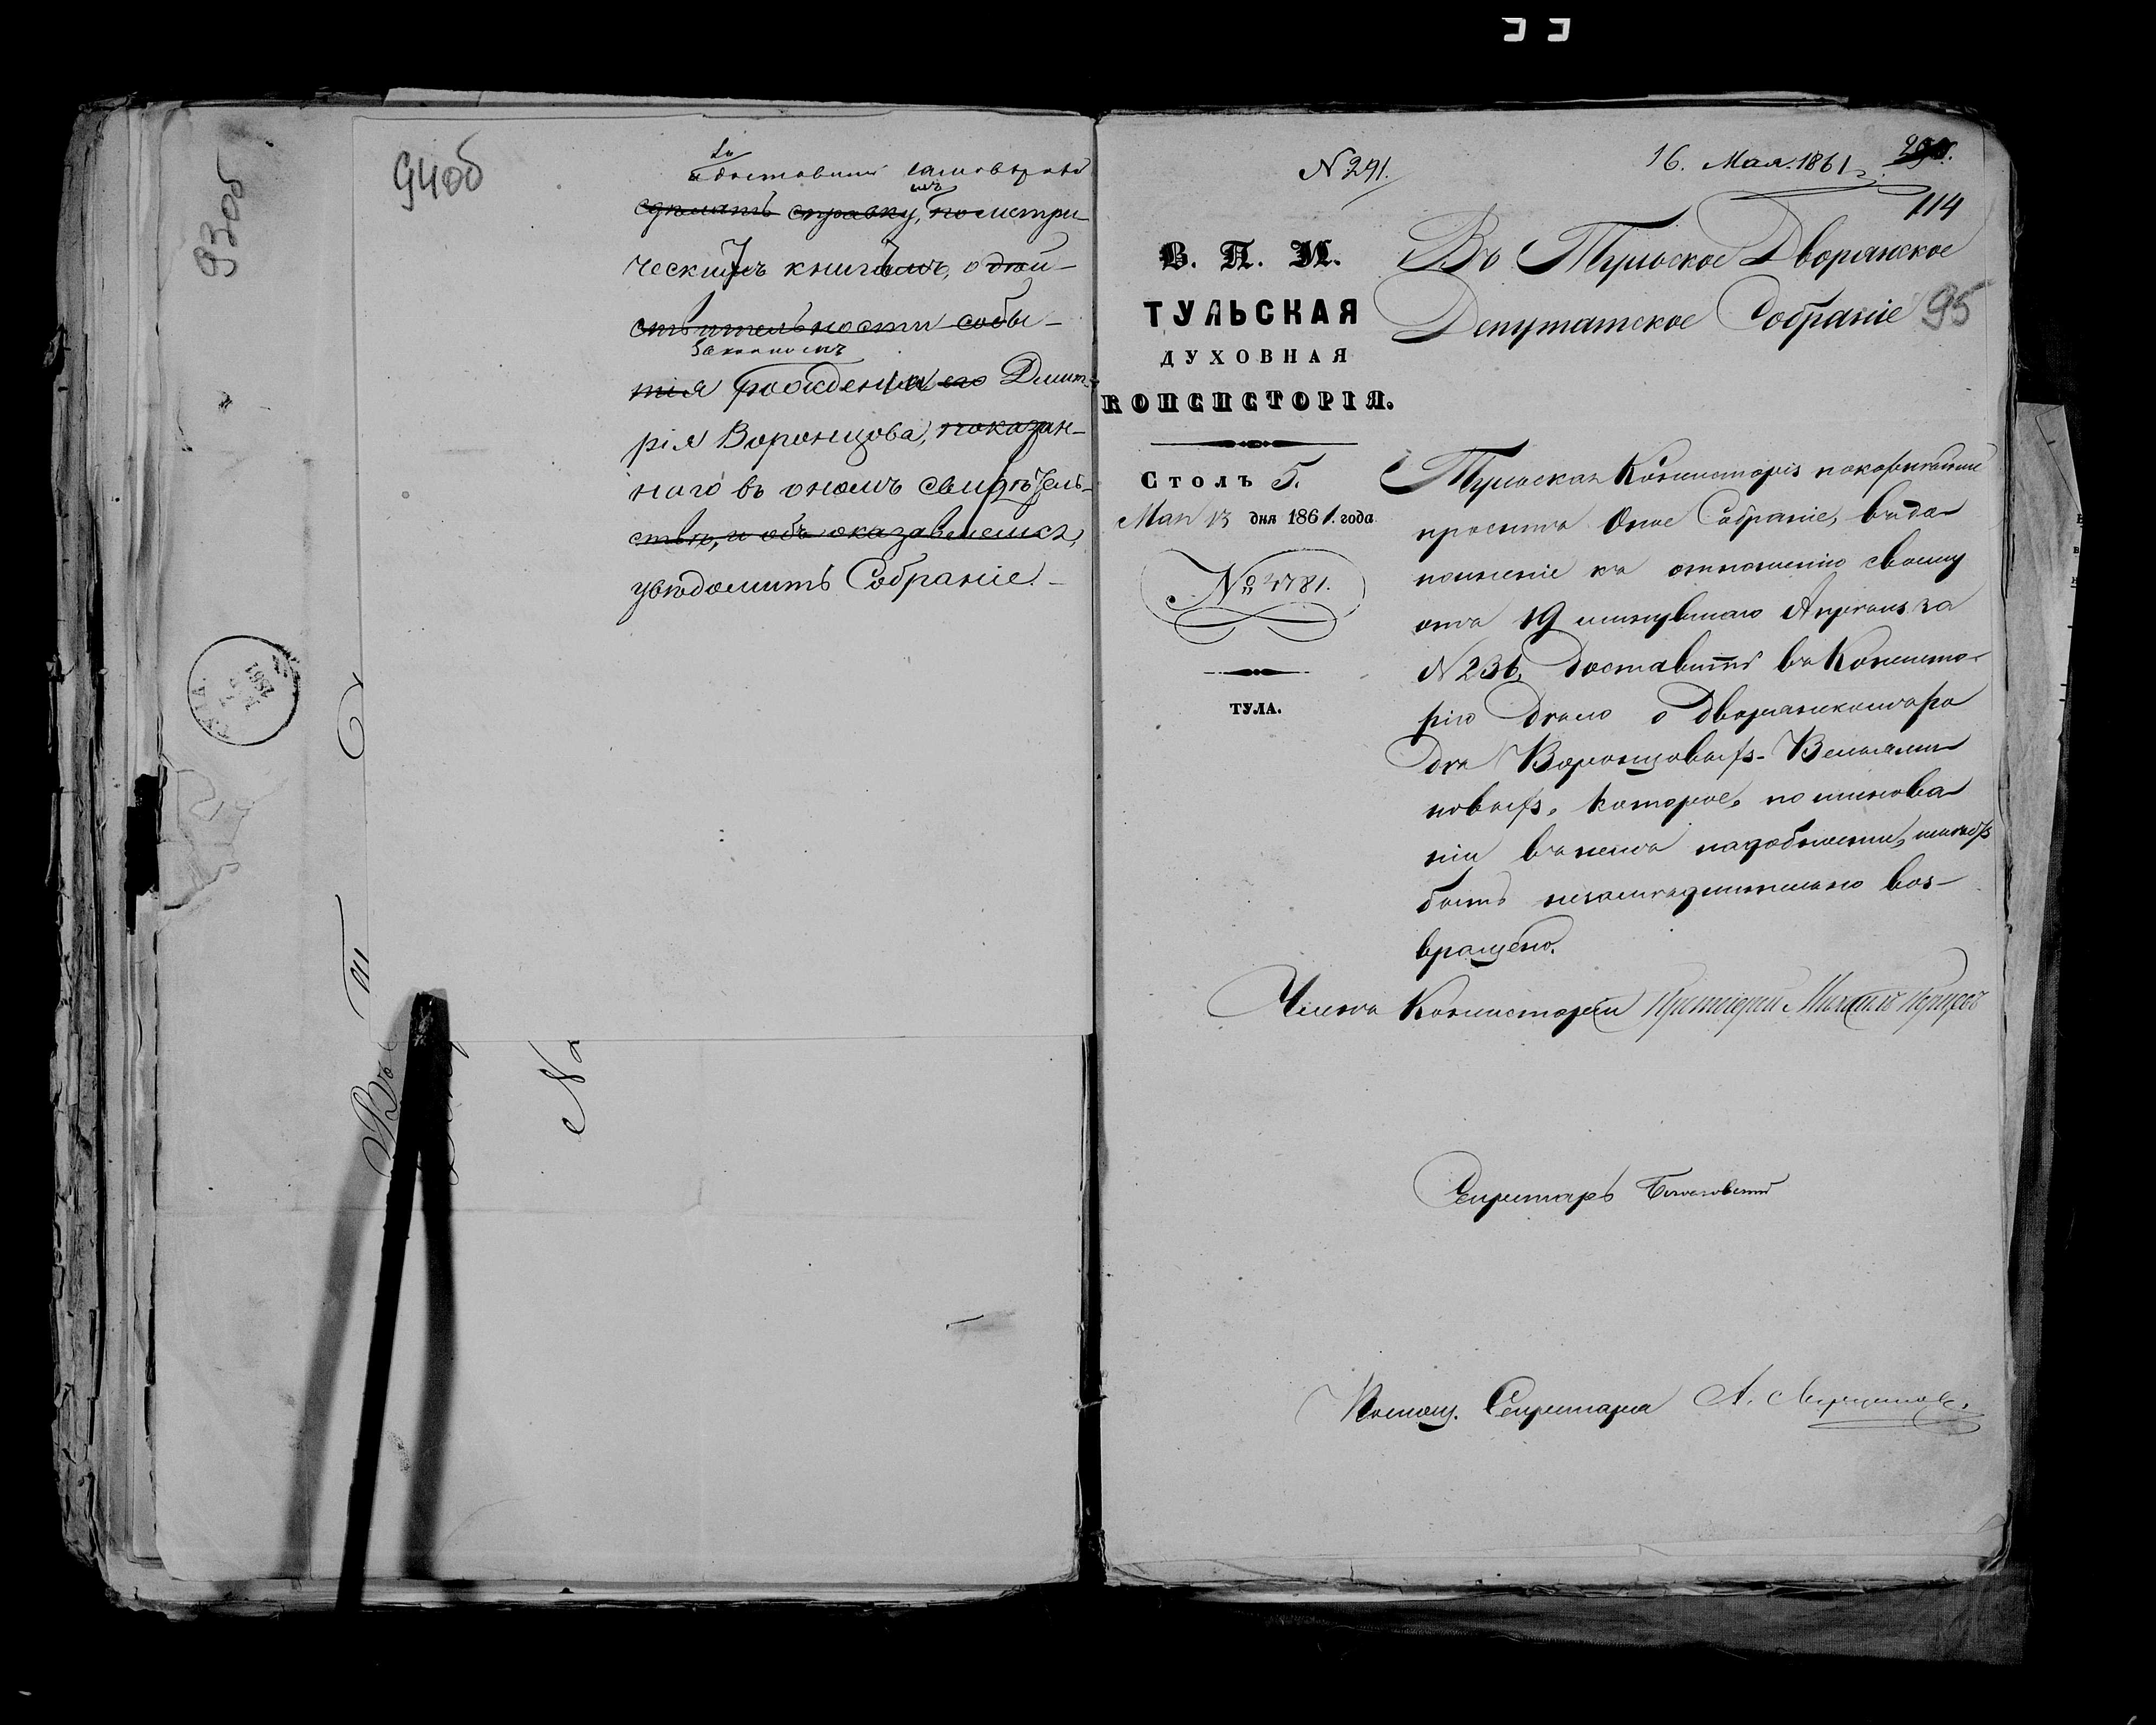 93об
94об
сдѣлать справку, по метри-
ческимъ книгамъ, о дѣй-
ствительности собы-
законность
тія рожденія его Дмит-
рія Воронцова, показан-
наго въ ономъ свидѣтель-
ствѣ, и объ оказавшемся,
увѣдомить Собраніе.-
1861
N 291.
16. Мая. 1861
114
95
В. П. И.
ТУЛЬСКАЯ
ДУХОВНАЯ
КОНСИСТОРІЯ.
Столъ 5.
Мая 13 дня 1861. года
№ 4781.
ТУЛА.
Въ Тульское Дворянское
Депутатское Собраніе
Тульская Консисторія покорнѣйше
проситъ Оное Собраніе, въ до-
полненіе къ отношенію своему
отъ 19 минувшаго Апрѣля за
N 236, доставить въ Консисто-
рію дѣло о дворянскомъ ро-
дѣ Воронцовыхъ-Вельями-
новыхъ, которое, по минова-
ніи въ немъ надобности, имѣетъ
быть незамедлительно воз-
вращено.
Членъ Консисторіи Протоіерей Михаилъ
Секретарь
Помощ. Секретаря А.